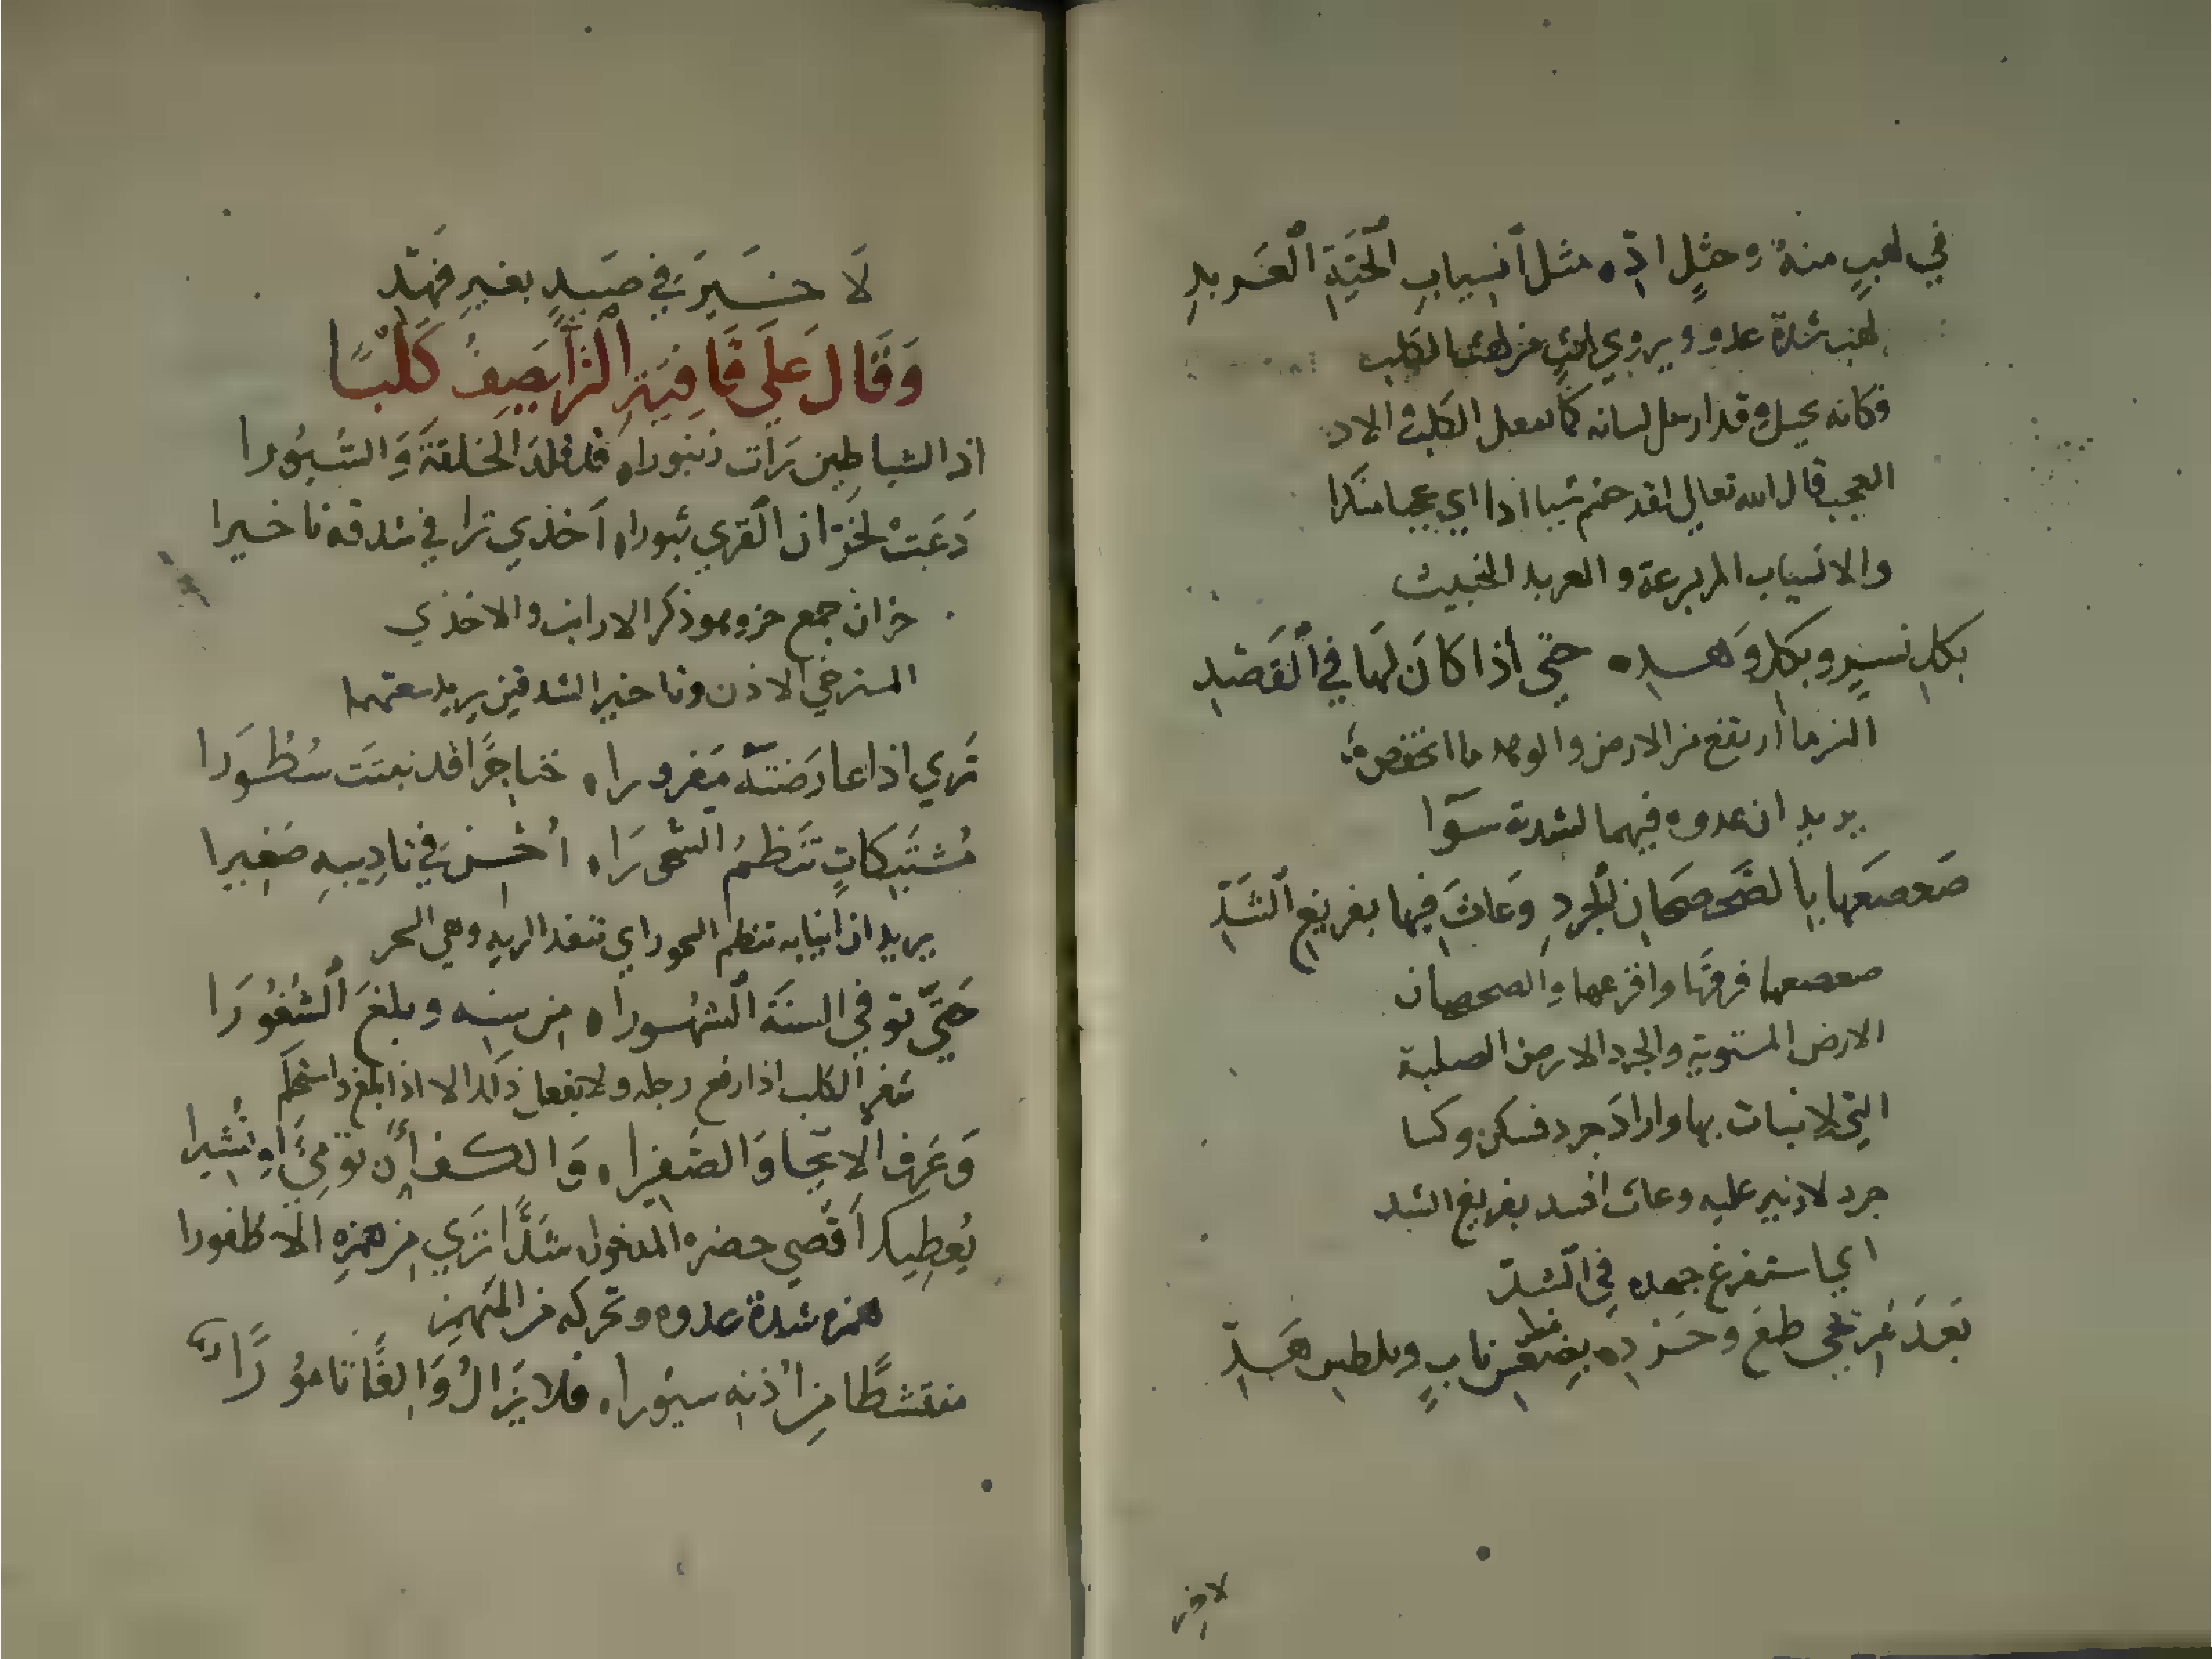 في لهبٍ منهُ وختلٍ ادِّ ه مثل انسيابِ الحيّةِ العربدِ
لهب شدة عدوه ويروي لهثٍ من لهث الكلب
وكانه يحيل وقد ارسل لسانه كما يفعل الكلب والاد
العجب قال الله تعالي لقد جئتم شيا ادا اي عجبا منكرا
والانسياب المر بسرعة والعربد الخبيث
بكل نسرٍ وبكل وَهدِ ه حتي اذا كانَ لها في القصدِ
النز ما ارتفع من الارض والوهد ما انخفض
يريد ان عدوه فيهما لشدته سوآ
صعصعها بالصحصحان الجردِ وعاثَ فيها بفريغ الشدِّ
صعصعها فرقها وافزعها والصحصحان
الارض المستوية والجرد الارض الصلبة
التي لا نبات بها واراد جرد فسكن وكسا
جرد لا زئبر عليه وعاث افسد بفريغ الشد
اي استفرغ جهده في الشدّ
بعدَ طمع وحردِ ه نابٍ
لا خير
لَا خيرَ في صيدٍ بغيرِ فهدِ
وَقَالَ عَلَي قَافِيَةِ الرَّا يَصِفُ كَلْبًا
اذا الشياطين رَات زنبورا ه قد قلد الحلقة وَالسُّيُورا
دَعَتْ لخزّان القري ثبورا ه اَخذي ترا في شدقه تاخيرا
خزان جمع خزز وهو ذكر الارانب والاخذي
المسترخي الاذن وتاخير الشدقين يريد سعتهما
تَري اذا عارَضته مَفرورا ه خناجرًا قد نبتت سُطُورَا
مُشتَبِكاتٍ تنظمُ السحورَا ه اُحسِنَ في تاديبهِ صَغيرا
يريد ان انيابه تنظم السحور اي تنفد الريه وهي السحر
حَتّي توفي السنةَ الشهُورا ه مِن سِنِه وبلغَ الشُغُورَا
شغر الكلب اذا رفع رجله ولا يفعل ذلك الا اذا بلغ واستحكم
وَعَرف الايحا وَالصَفيرا ه وَالكف اَن تومِيَ او تُشيرا
يُعطِيك اَقصي حضره المدخول شَدًّا تري مِن همزهِ الاظفورا
همزه شدة عدوه وتحركه من المهمز
منتشطًا مِن اُذنه سيُورا ه فلا يزالُ وَالغًا تامُورَا